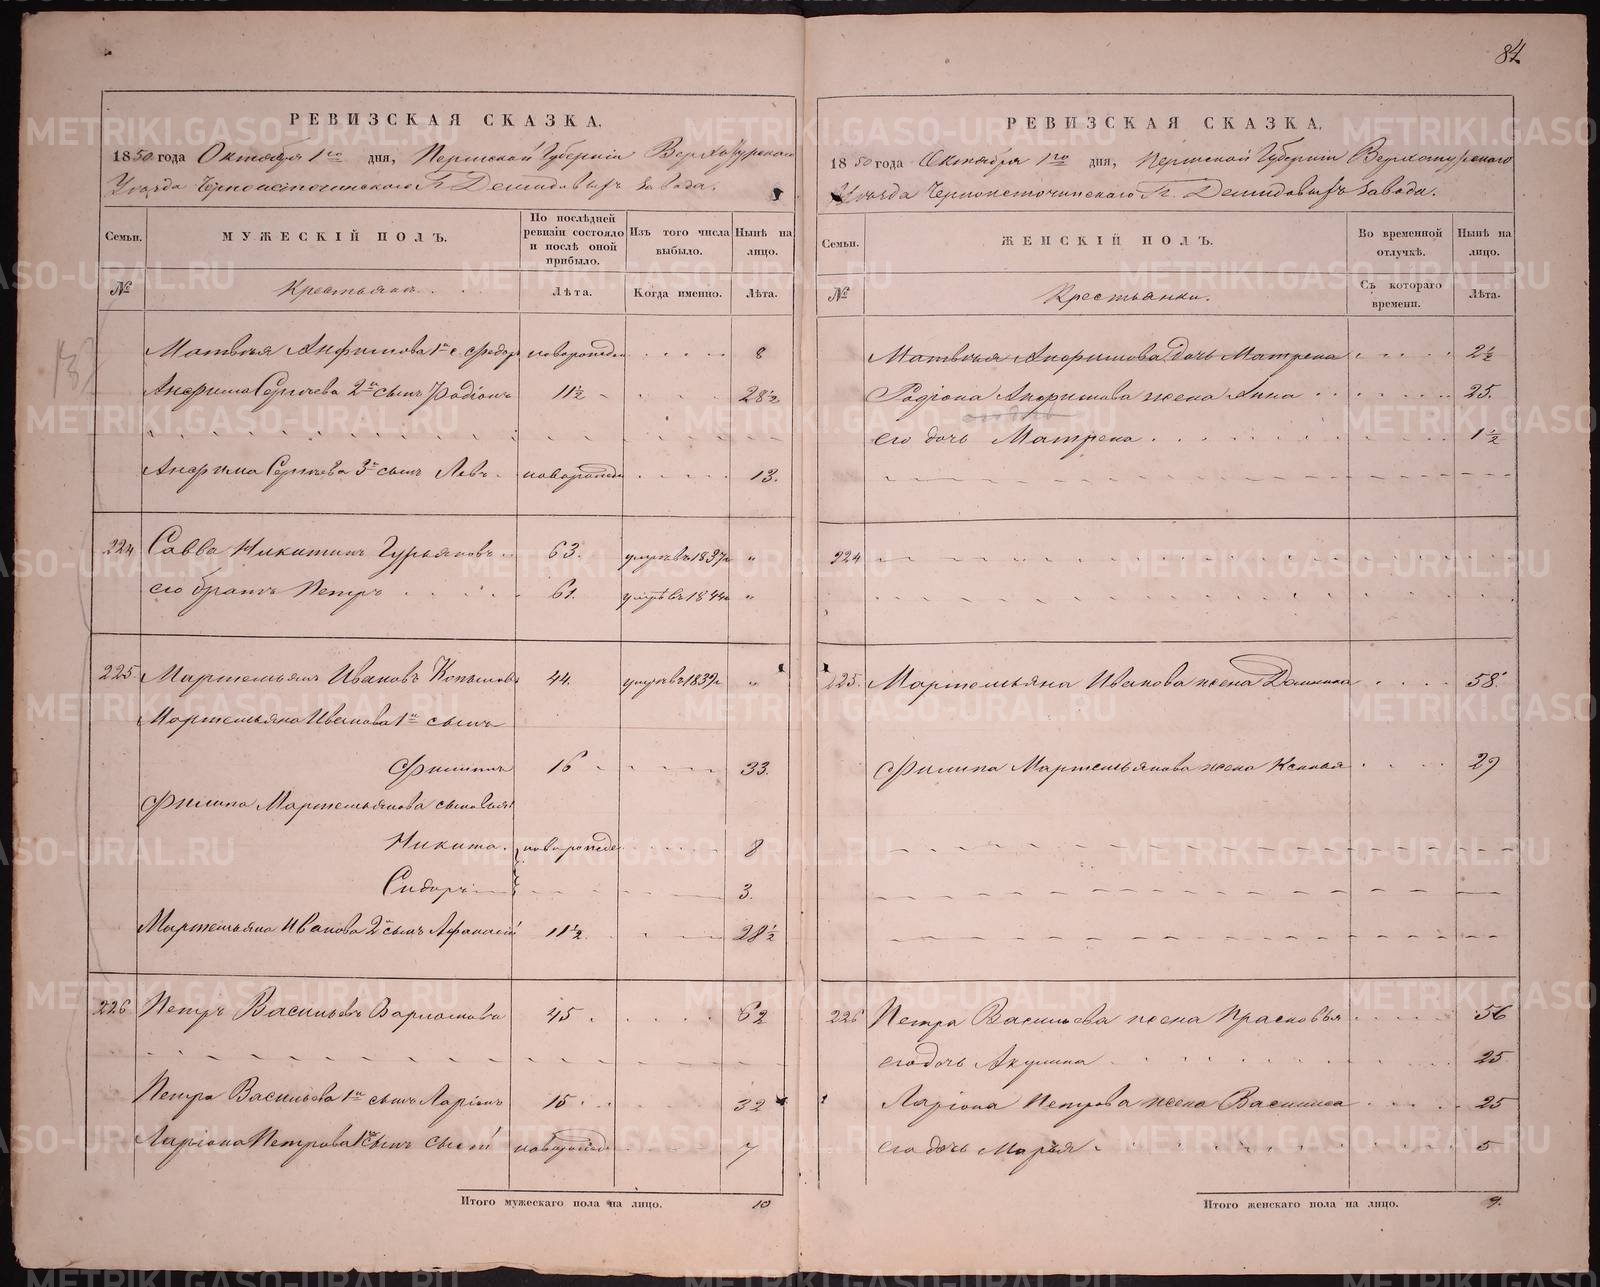 84
РЕВИЗСКАЯ СКАЗКА.
1850 года Октября 1го дня, Пермской Губерніи Верхотурскаго
Уѣзда Черноисточинскаго Гг. Демидовыхъ завода.
Семьи.
МУЖЕСКІЙ ПОЛЪ.
По послѣдней ревизіи состояло и послѣ оной прибыло.
Изъ того числа выбыло.
Нынѣ на лицо.
№
Крестьяне.
Лѣта.
Когда именно.
Лѣта.
Матвѣя Анфимова 1й с. Ѳедоръ новорожден 8
Анфима Сергѣева 2й сынъ Родіонъ 11½ 28½
Анфима Сергѣева 3й сынъ Левъ новорожден 13.
224 Савва Никитинъ Гурьяновъ 63. умеръ въ 1837 "
его братъ Петръ 61. умеръ въ 1844 "
225. Мартемьянъ Ивановъ Копыловъ 44. умеръ въ 1839 "
Мартемьяна Иванова 1й сынъ
Филиппъ 16 33.
Филипа Мартемьянова сыновья
Никита. новорожден 8
Сидоръ 3.
Мартемьяна Иванова 2й сынъ Афанасій 11½ 28½
226 Петръ Васильевъ Варламовъ 45 62
Петра Васильева 1й сынъ Ларіонъ 15 32
Ларіона Петрова 1й сынъ новорожден 7
Итого мужескаго пола на лицо. 10
РЕВИЗСКАЯ СКАЗКА.
1850 года Октября 1го дня, Пермской Губерніи Верхотурскаго
Уѣзда Черноисточинскаго Гг. Демидовыхъ завода.
Семьи.
ЖЕНСКІЙ ПОЛЪ.
Во временной отлучкѣ.
Нынѣ на лицо.
№
Крестьянки.
Съ котораго времени.
Лѣта.
Матвѣя Анфимова дочь Матрена 2½
Родіона Анфимова жена Анна 25.
его дочь Матрена 1½
224
225. Мартемьяна Иванова жена 58.
Филипа Мартемьянова жена Ксенья 29
226 Петра Васильева жена Прасковья 56
его дочь Акулина 25
Ларіона Петрова жена Василиса 25
его дочь Марья 5
Итого женскаго пола на лицо. 9.
METRIKI.GASO-URAL.RU